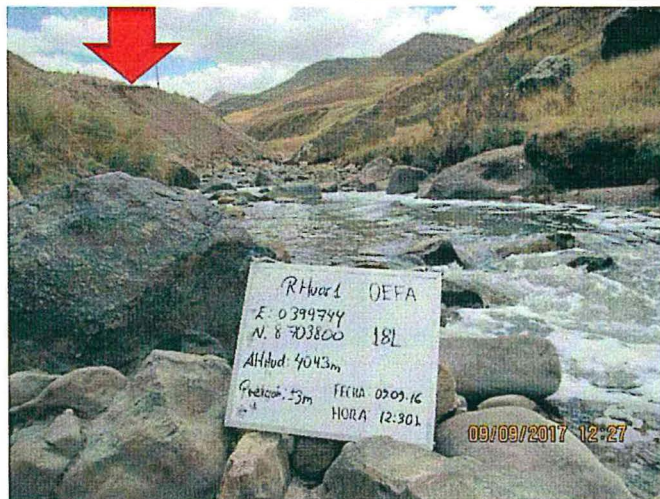 RHuar1 OEFA
E: 0399744
N: 8703800 18L
Altitud: 4043m
Precisión: ±3m FECHA: 09.09.16
HORA: 12:30h
09/09/2017 12:27